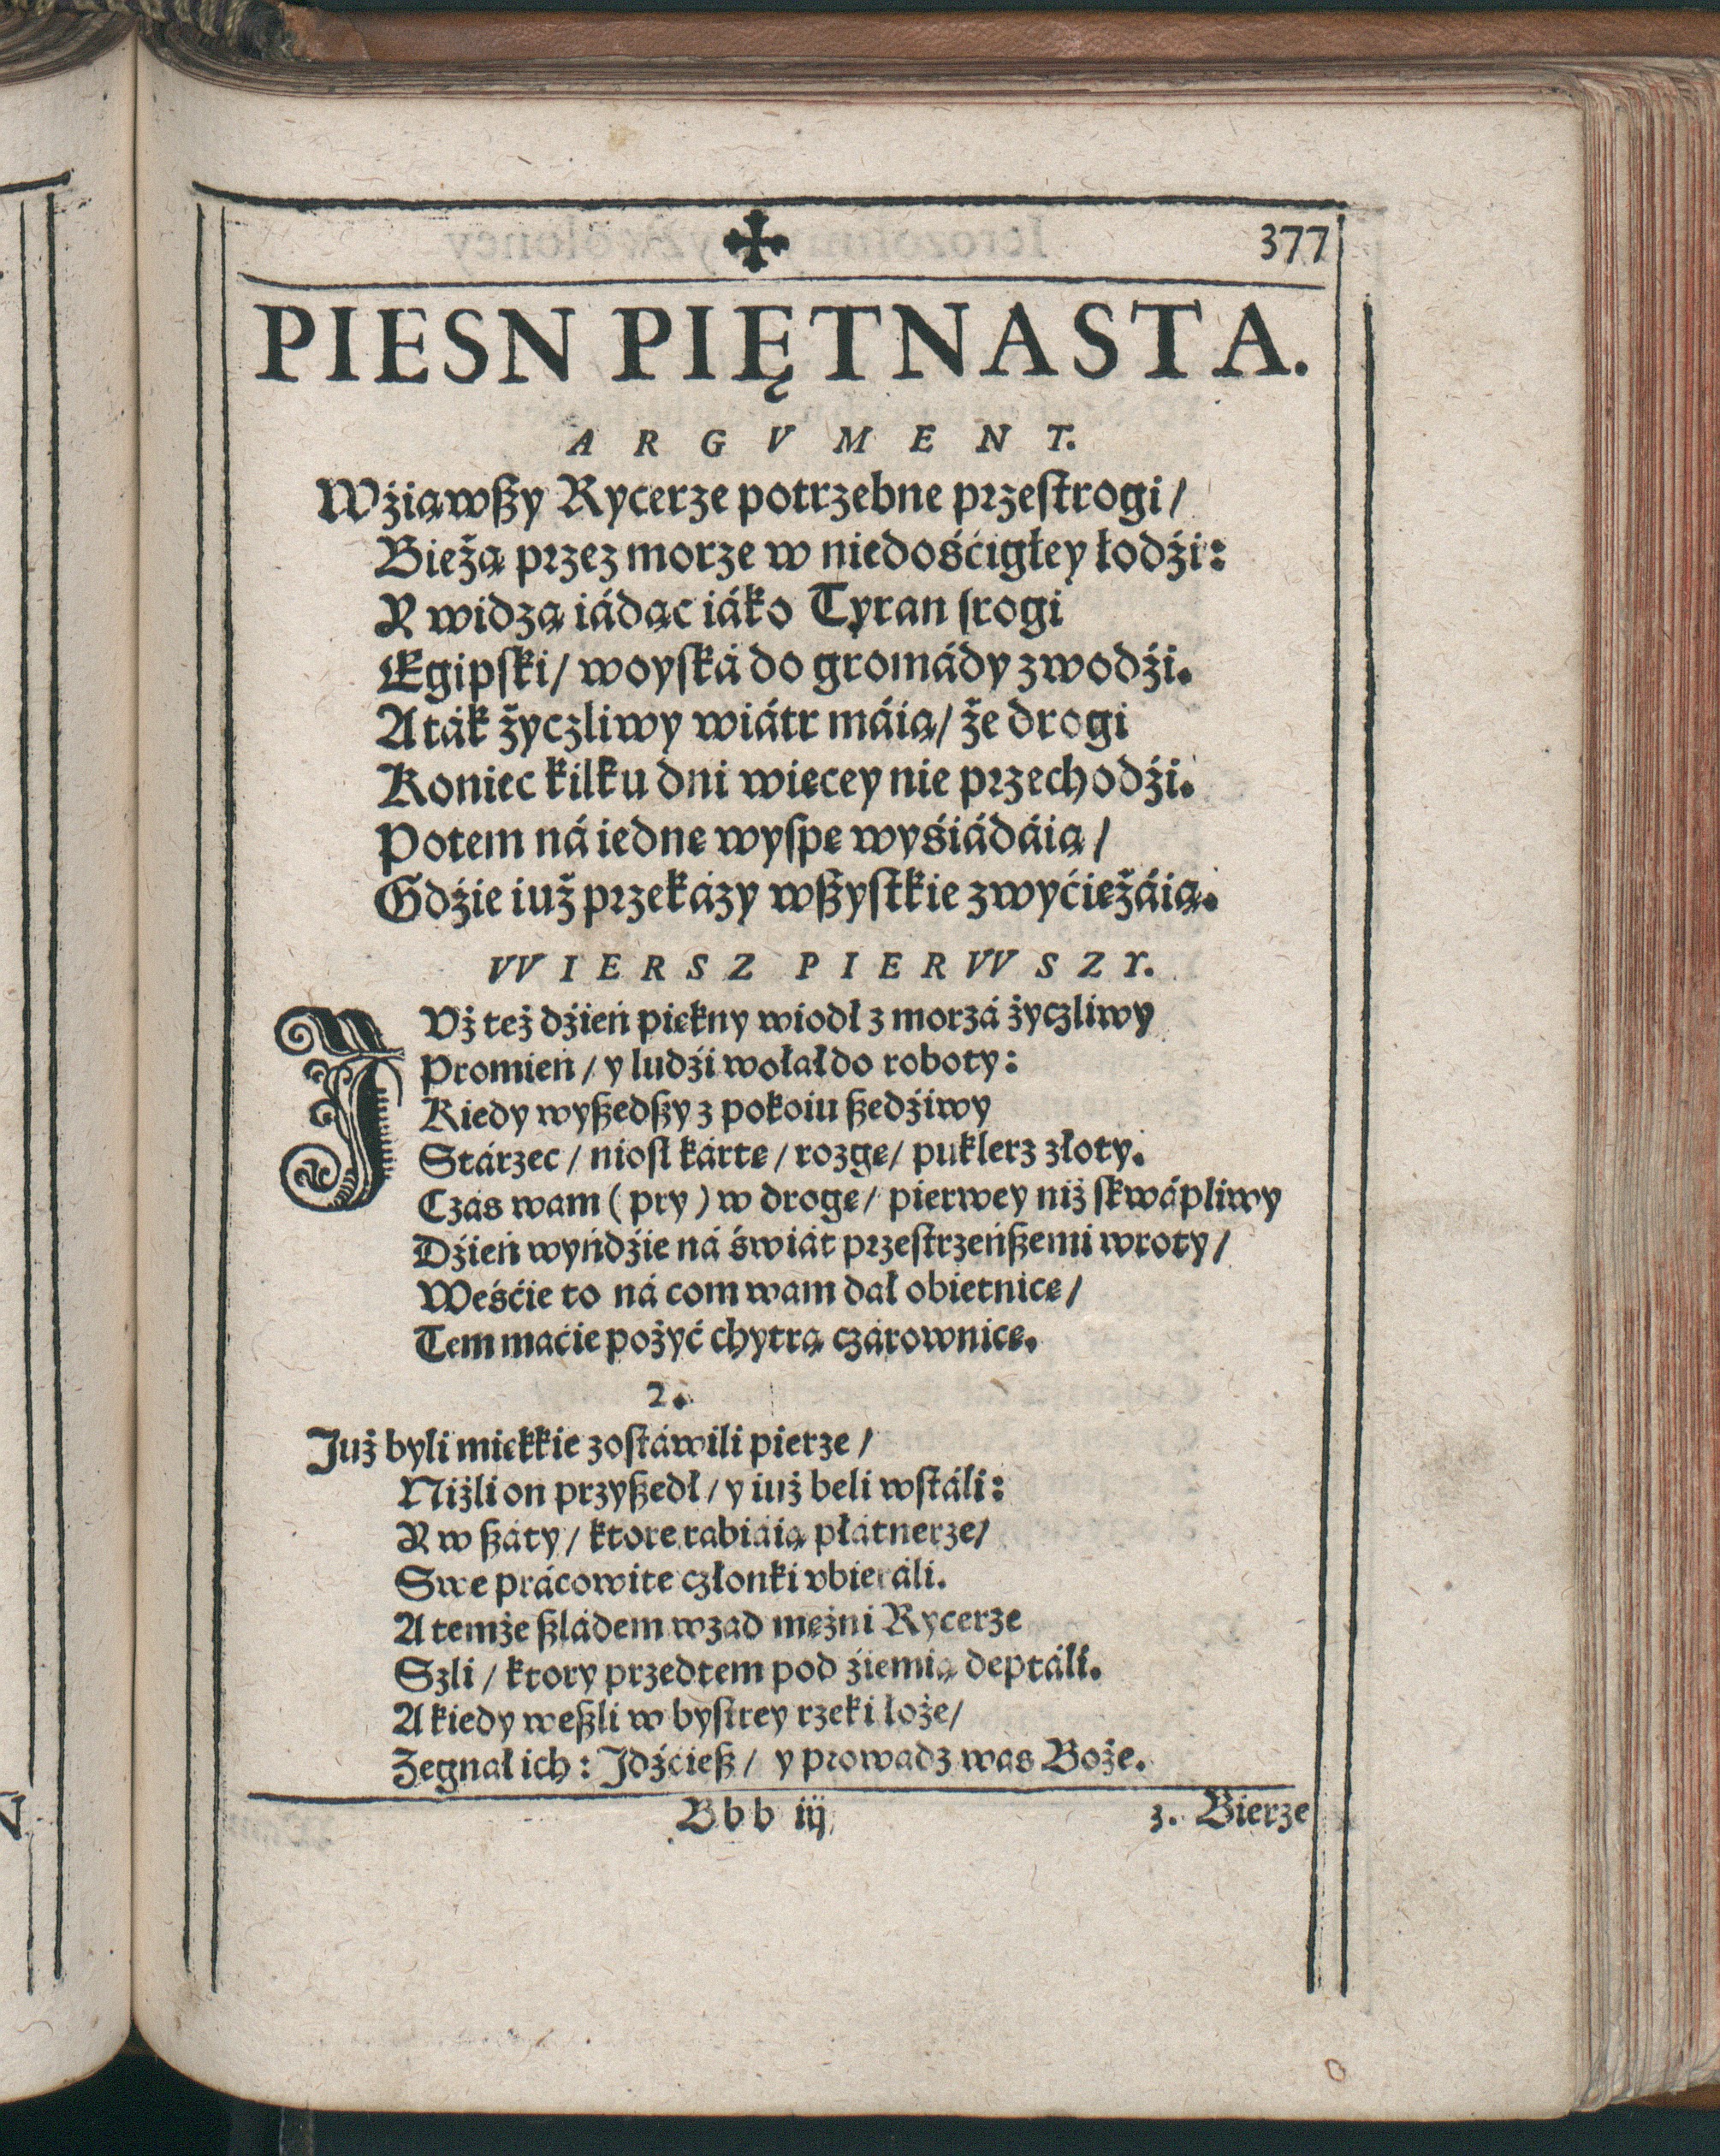 377
PIESN PIĘTNASTA.
ARGVMENT.
Wźiąwßy Rycerze potrzebne przeſtrogi/
Bieżą przez morze w niedośćigłey łodźi:
Y widzą iádąc iáko Tyran ſrogi
Egipſki/ woyſká do gromády zwodźi.
A ták życzliwy wiátr máią/ że drogi
Koniec kilku dni więcey nie przechodźi.
Potem ná iednę wyſpę wyśiádáią/
Gdźie iuż przekázy wßyſtkie zwyćiężáią.
WIERSZ PIERWSZY.
IVż też dźień piękny wiodł z morzá życzliwy
Promień/ y ludźi wołał do roboty:
Kiedy wyßedßy z pokoiu ßedźiwy
Stárzec/ nioſł kártę/ rozgę/ puklerz złoty.
Czás wam (pry) w drogę/ pierwey niż ſkwápliwy
Dźień wyńdźie ná świát przeſtrzeńßemi wroty/
Weśćie to ná com wam dał obietnicę/
Tem maćie pożyć chytrą czárownicę.
2.
Już byli miękkie zoſtáwili pierze/
Niżli on przyßedł/ y iuż beli wſtáli:
Y w ßáty/ ktore rabiáią płátnerze/
Swe prácowite członki vbieráli.
A temże ßládem wzad mężni Rycerze
Szli/ ktory przedtem pod źiemią deptáli.
A kiedy weßli w byſtrey rzeki łoże/
Żegnał ich: Jdźćieß/ y prowadz was Boże.
Bbb iij
3. Bierze
N